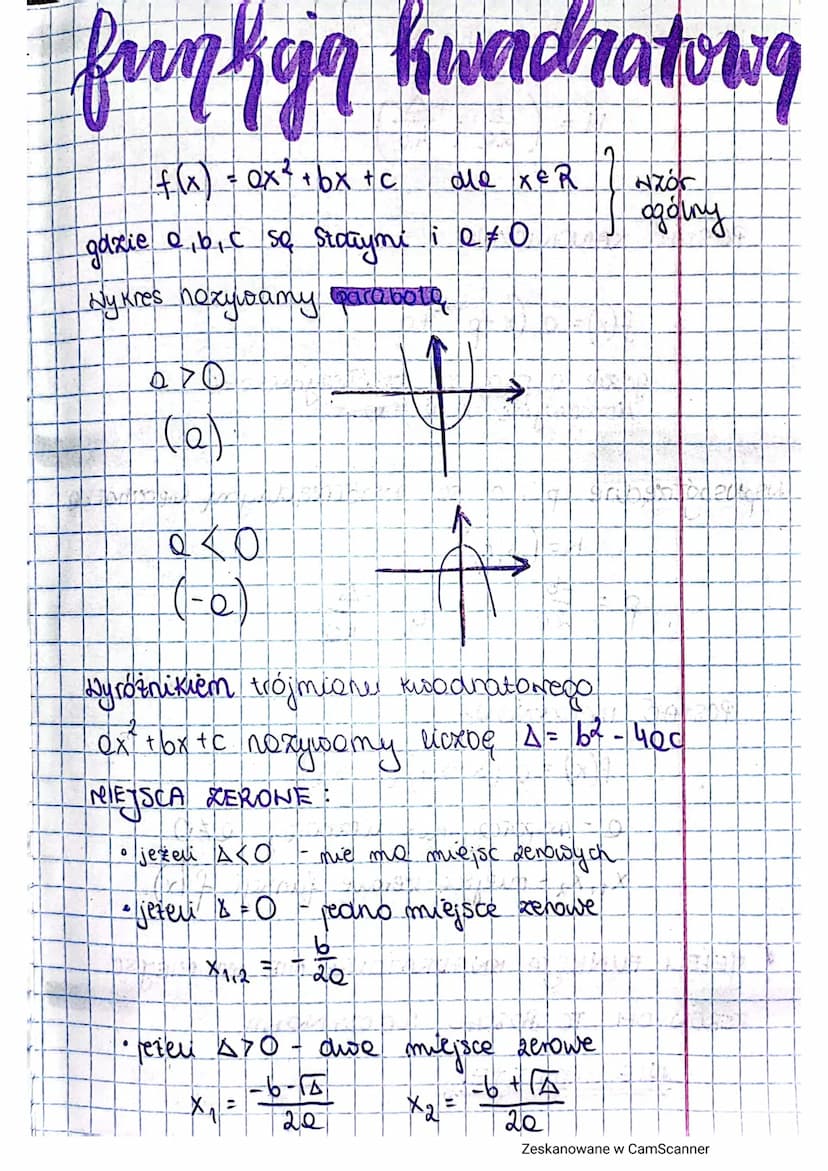 funkcja kwadratowa
f(x) = ax² + bx + c dla x ∈ R } wzór ogólny
gdzie a, b, c są stałymi i a ≠ 0
Wykres nazywamy parabolą
a > 0
(a)
a < 0
(-a)
Wyróżnikiem trójmianu kwadratowego
ax² + bx + c nazywamy liczbę Δ = b² - 4ac
MIEJSCA ZEROWE:
• jeżeli Δ < 0 - nie ma miejsc zerowych
• jeżeli Δ = 0 - jedno miejsce zerowe
x₁,₂ = - b/2a
• jeżeli Δ > 0 - dwa miejsca zerowe
x₁ = (-b - √Δ)/2a x₂ = (-b + √Δ)/2a
Zeskanowane w CamScanner